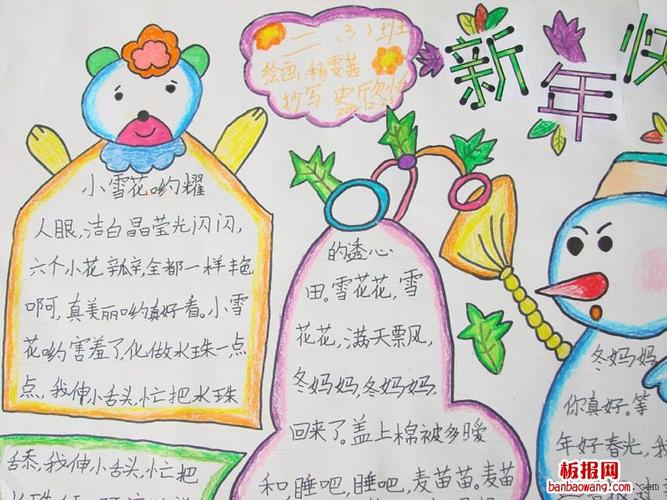 二(3)班
绘画:杨雯茜
抄写:史欣怡
新年快
小雪花哟耀
人眼,洁白晶莹光闪闪,
六个小花瓣,全都一样艳
啊呵,真美丽哟真好看。小雪
花哟害羞了,化做水珠一点
点,我伸小舌头,忙把水珠
舔,我伸小舌头,忙把
的透心
田。雪花花,雪
花花,满天飘风,
冬妈妈,冬妈妈.
回来了。盖上棉被多暖
和睡吧,睡吧,麦苗苗。麦苗
冬妈妈,
你真好。等
年好春光,我
板报网
banbaowang.com